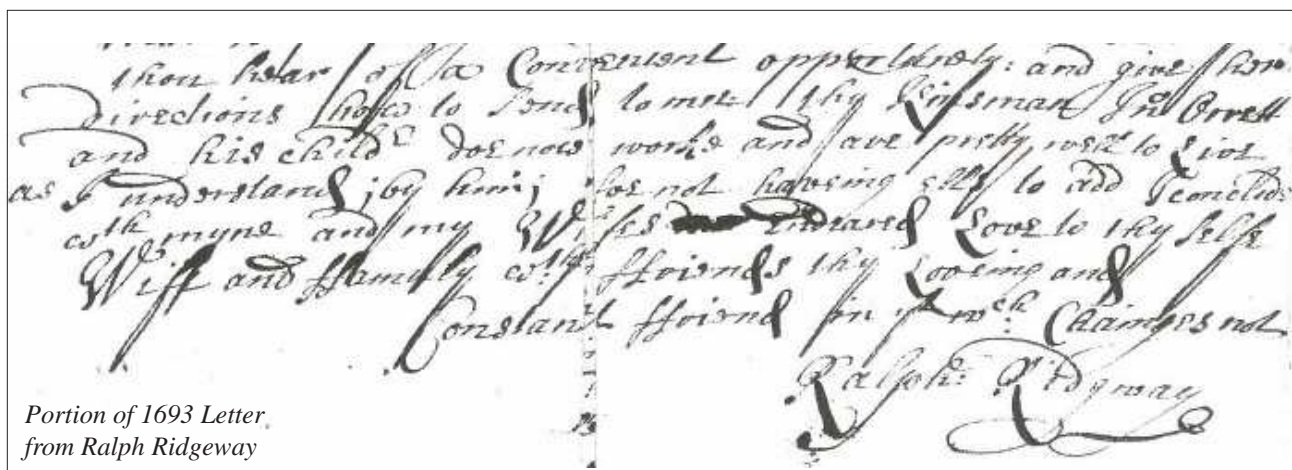 thou hear of a Convenient oppertunety: and give her
Directions how to Send to mee thy Kinsman Jno Orrett
and his childr doe now worke and are pretty well to Live
as I understand by him; Soe not haveing els to add I conclud:
wth myne and my Wifes Endeared Love to thy selfe
Wiff and ffamyly wth ffriends thy Loving and
Constant ffriend in yt wch Chainges not
Ralph: Ridgway
Portion of 1693 Letter
from Ralph Ridgeway